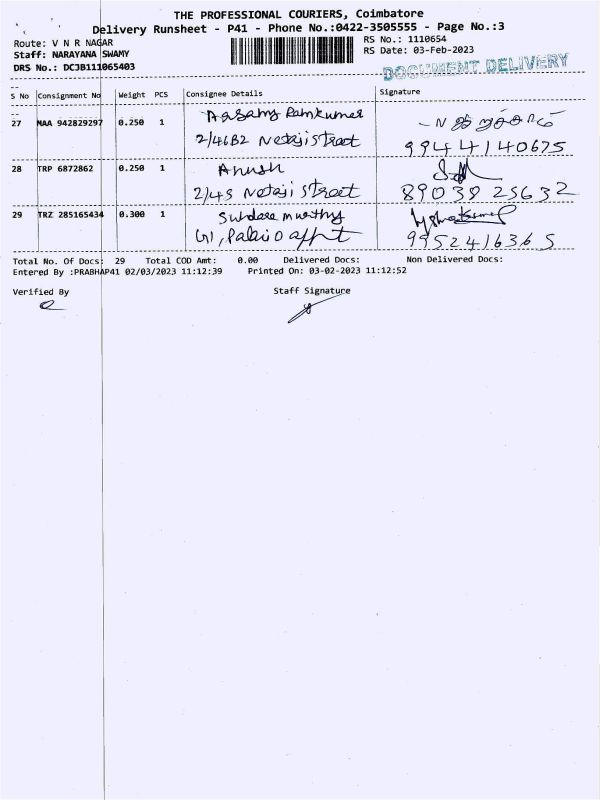 THE PROFESSIONAL COURIERS, Coimbatore
Delivery Runsheet - P41 - Phone No.:0422-3505555 - Page No.:3
Route: V N R NAGAR
RS No.: 1110654
Staff: NARAYANA SWAMY
RS Date: 03-Feb-2023
DRS No.: DCJB111065403
DOCUMENT DELIVERY
S No Consignment No Weight PCS Consignee Details Signature
27 MAA 942829297 0.250 1 Ramkumar
2/46B2 Netaji street
99441 40675
28 TRP 6872862 0.250 1 Anush
2/45 Netaji street 89039 25632
29 TRZ 285165434 0.300 1
G1, appt 9952416365
Total No. Of Docs: 29 Total COD Amt: 0.00 Delivered Docs: Non Delivered Docs:
Entered By :PRABHAP41 02/03/2023 11:12:39 Printed On: 03-02-2023 11:12:52
Verified By Staff Signature